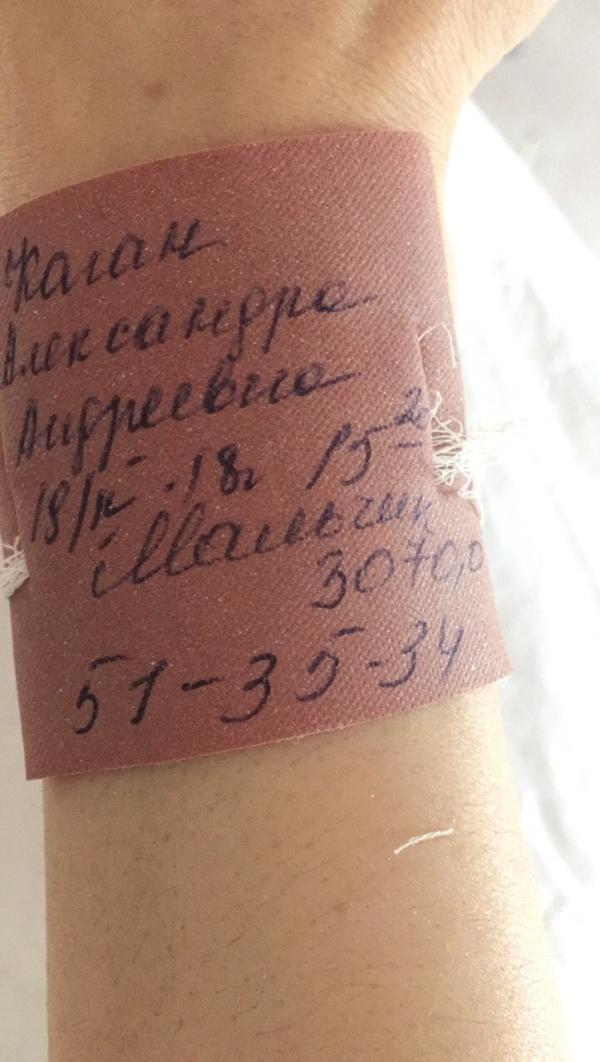 Каган
Александра
Андреевна
18/IV.18г 15 20
Мальчик
3070,0
51-35-34